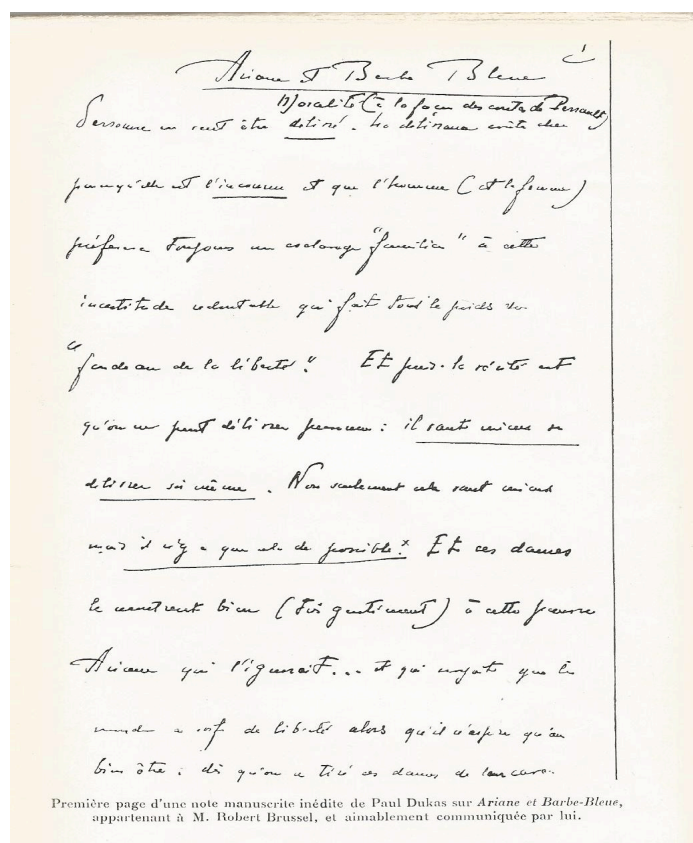 1
Ariane et Barbe Bleue
Moralité (à la façon des contes de Perrault)
Personne ne veut être délivré. La délivrance coûte cher
parcequ'elle est l'inconnu et que l'homme (et la femme)
préférera toujours un esclavage "familier" à cette
incertitude redoutable qui fait tout le poids du
"fardeau de la liberté". Et puis la vérité est
qu'on ne peut délivrer personne : il vaut mieux se
délivrer soi même. Non seulement cela vaut mieux
mais il n'y a que cela de possible. x Et ces dames
le montrent bien (très gentiment) à cette pauvre
Ariane qui l'ignorait... et qui croyait que le
monde a soif de liberté alors qu'il n'aspire qu'au
bien être : dès qu'on a tiré ces dames de leur cave
Première page d'une note manuscrite inédite de Paul Dukas sur Ariane et Barbe-Bleue,
appartenant à M. Robert Brussel, et aimablement communiquée par lui.